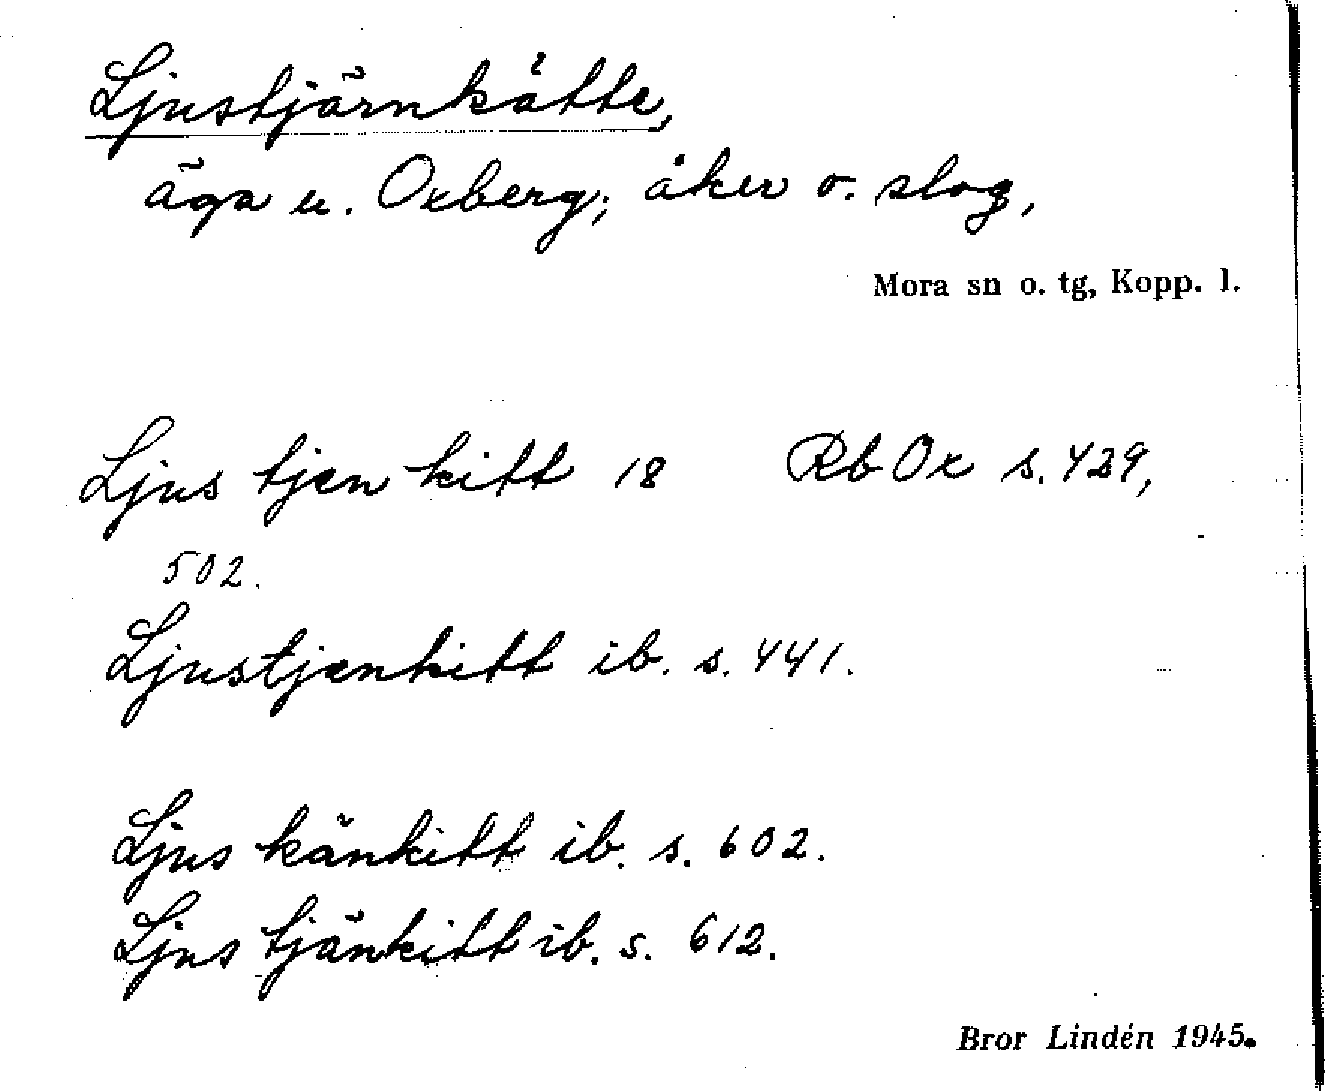 Ljustjärnkätte,
äga u. Oxberg; åker o. slog,
Mora sn o. tg, Kopp. l.
Ljus tjen kitt 18 Rb Ox s. 429,
502.
Ljustjenkitt ib. s. 441.
Ljus känkitt ib. s. 602.
Ljus tjänkitt ib. s. 612.
Bror Lindén 1945.